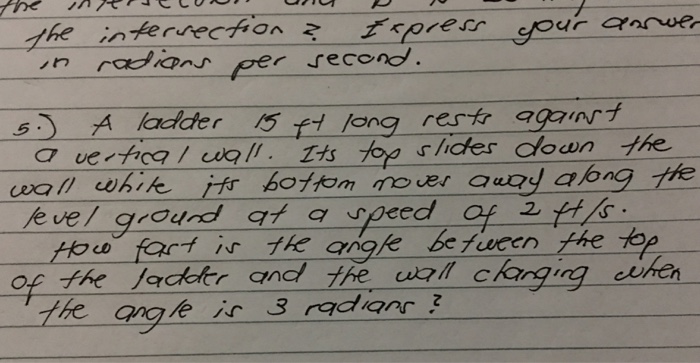 the intersection ? Express your answer
in radians per second.
5.) A ladder 15 ft long rests against
a vertical wall. Its top slides down the
wall while its bottom moves away along the
level ground at a speed of 2 ft/s.
How fast is the angle between the top
of the ladder and the wall changing when
the angle is 3 radians ?